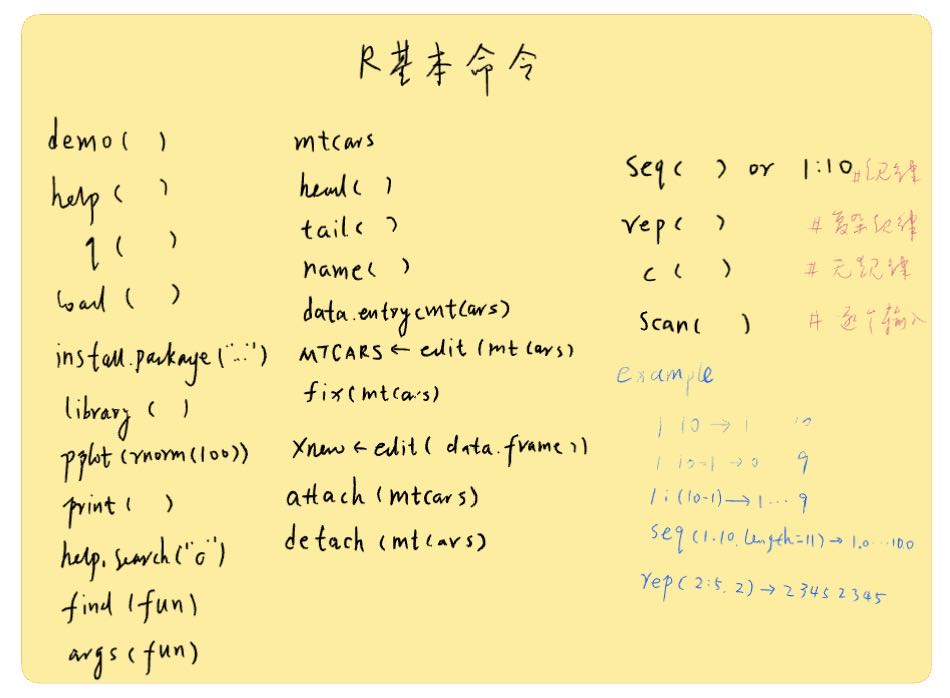 R基本命令
demo( )
help( )
q( )
load( )
install.package("...")
library( )
pplot(rnorm(100))
print( )
help.search("o")
find(fun)
args(fun)
mtcars
head( )
tail( )
name( )
data.entry(mtcars)
MTCARS ← edit(mtcars)
fix(mtcars)
xnew ← edit( data.frame())
attach(mtcars)
detach(mtcars)
seq( ) or 1:10 #规律
rep( ) #复杂规律
c( ) #无规律
scan( ) #逐个输入
example
1 10 → 1 10
1 10-1 → 0 9
1:(10-1) → 1...9
seq(1.10.length=11) → 1.0...10.0
rep(2:5,2) → 23452345